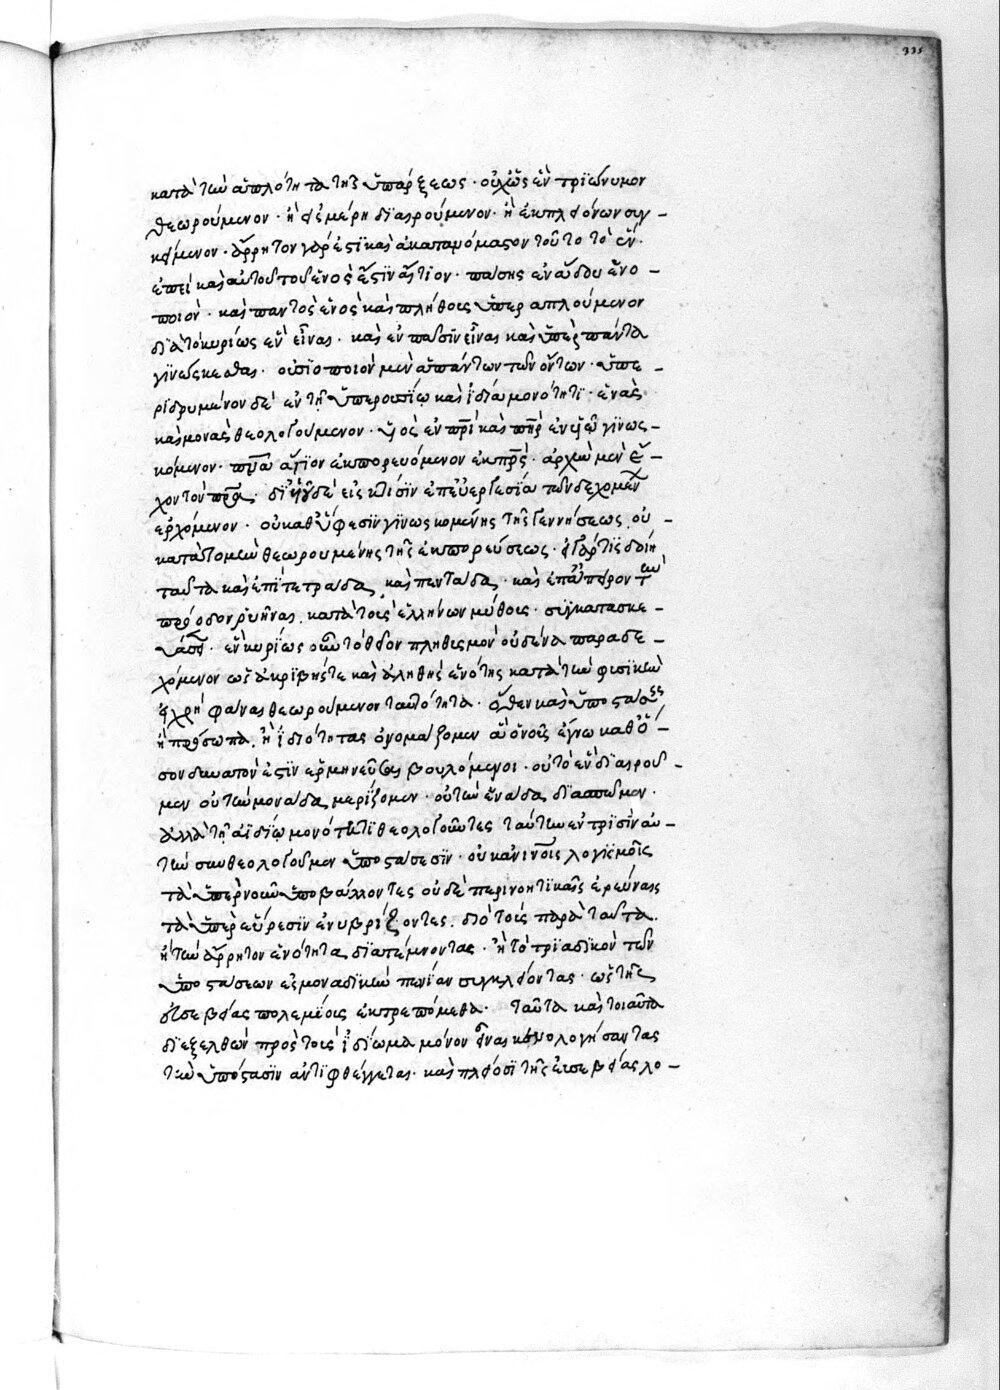 335
κατὰ τὴν ἁπλότητα τῆς ὑπάρξεως· οὐχ ὡς ἓν τριώνυμον
θεωρούμενον· ἢ εἰς μέρη διαιρούμενον· ἢ ἐκ πλειόνων συγ –
κείμενον· ἄρρητον γάρ ἐστι καὶ ἀκατανόμαστον τοῦτο τὸ ἕν·
ἐπεὶ καὶ αὐτοῦ τοῦ ἑνὸς ἐστὶν αἴτιον· πάσης ἑνάδος ἑνο –
ποιὸν· καὶ παντὸς ἑνὸς καὶ πλήθους ὑπεραπλούμενον
διὰ τὸ κυρίως ἓν εἶναι· καὶ ἐν πᾶσιν εἶναι καὶ ὑπὲρ πάντα
γινώσκεσθαι· οὐσιοποιὸν μὲν ἁπάντων τῶν ὄντων· ὑπε –
ριδρυμένον δὲ ἐν τῇ ὑπερουσίῳ καὶ ἰδίᾳ μονότητι· ἑνὰς
καὶ μονὰς θεολογούμενον· υἱὸς ἐν πρὶ καὶ πὴρ ἐν υἱῷ γινωσ –
κόμενον· πνα ἅγιον ἐκπορευόμενον ἐκ πρς· ἀρχὴν μὲν ἔ –
χον τὸν πρα· δι' υἱοῦ δὲ εἰς κτίσιν ἐπ' εὐεργεσίᾳ τῶν δεχομένων
ἐρχόμενον· οὐ καθ' ὕφεσιν γινωσκομένης τῆς γεννήσεως· οὐ
κατὰ τομὴν θεωρουμένης τῆς ἐκπορεύσεως· εἰ γάρ τις δοίη
ταῦτα καὶ ἐπὶ τετράδα, καὶ πεντάδα· καὶ ἐπ' ἄπειρον τὴν
πρόοδον ῥυῆναι, κατὰ τοὺς ἑλλήνων μύθους· συγκατασκε –
υάσει· ἓν κυρίως οὖν τὸ θεῖον πληθυσμὸν οὐδένα παραδε –
χόμενον ὡς ἀκριβής τε καὶ ἀληθὴς ἑνότης κατὰ τὴν φυσικὴν
εἰ χρὴ φάναι θεωρούμενον ταυτότητα· ὅθεν καὶ ὑποστάσεις
ἢ πρόσωπα, ἢ ἰδιότητας ὀνομάζομεν ἃ ὁ νοῦς ἔγνω καθ' ὅ –
σον δυνατὸν ἐστὶν ἑρμηνεῦσαι βουλόμενοι· οὐ τὸ ἓν διαιροῦ –
μεν οὐ τὴν μονάδα μερίζομεν· οὐ τὴν ἑνάδα διασπῶμεν·
ἀλλὰ τῇ ἀϊδίῳ μονότητι θεολογοῦντες ταύτην ἐν τρισὶν αὐ –
τὴν συνθεολογοῦμεν ὑποστάσεσιν· οὐκ ἀνθρωπίνοις λογισμοῖς
τὰ ὑπὲρ νοῦν ὑποβάλλοντες οὐδὲ περινοητικαῖς ἐρεύναις
τὰ ὑπὲρ εὕρεσιν ἐνυβρίζοντες. διὸ τοὺς παρὰ ταῦτα
ἢ τὴν ἄρρητον ἑνότητα διατέμνοντας· ἢ τὸ τριαδικὸν τῶν
ὑποστάσεων εἰς μοναδικὴν πενίαν συγκλείοντας· ὡς τῆς
εὐσεβείας πολεμίους ἐκτρεπόμεθα· ταῦτα καὶ τοιαῦτα
διεξελθὼν πρὸς τοὺς ἰδίωμα μόνον εἶναι κενολογήσαντας
τὴν ὑπόστασιν ἀντιφθέγγεται· καὶ πλείοσι τῆς εὐσεβείας λο –